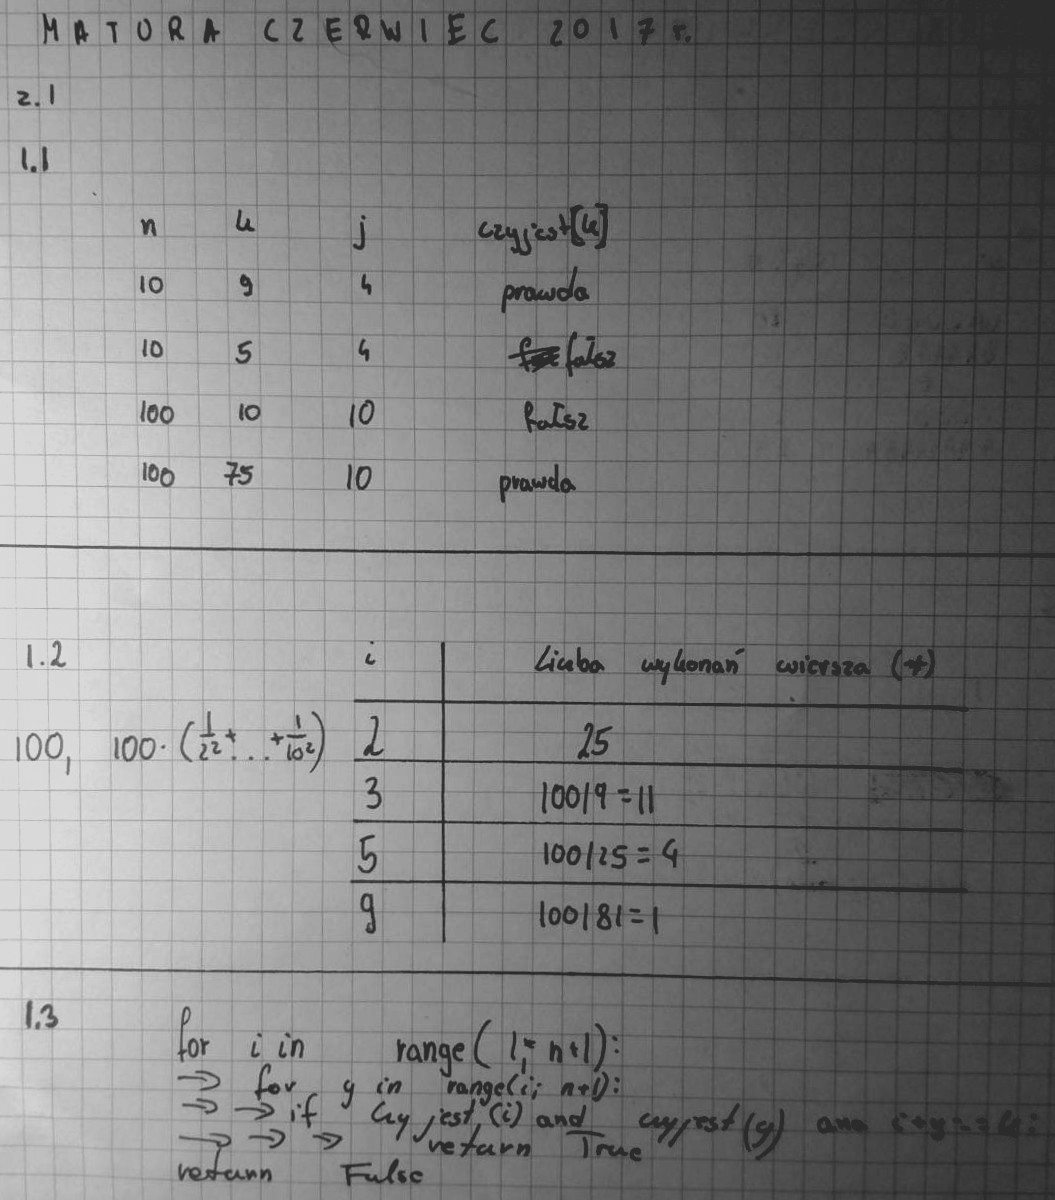 MATURA CZERWIEC 2017 r.
z.1
1.1
n k j czyjest[k]
10 9 4 prawda
10 5 4 fałsz
100 10 10 fałsz
100 75 10 prawda
1.2
i Liczba wykonań wiersza (*)
100, 100·(1/2²+...+1/10²) 2 25
3 100/9=11
5 100/25=4
9 100/81=1
1.3
for i in range(1; n+1):
→ for y in range(i; n+1):
→ → if czyjest(i) and czyjest(y) and i+y==k:
→ → → return True
return False